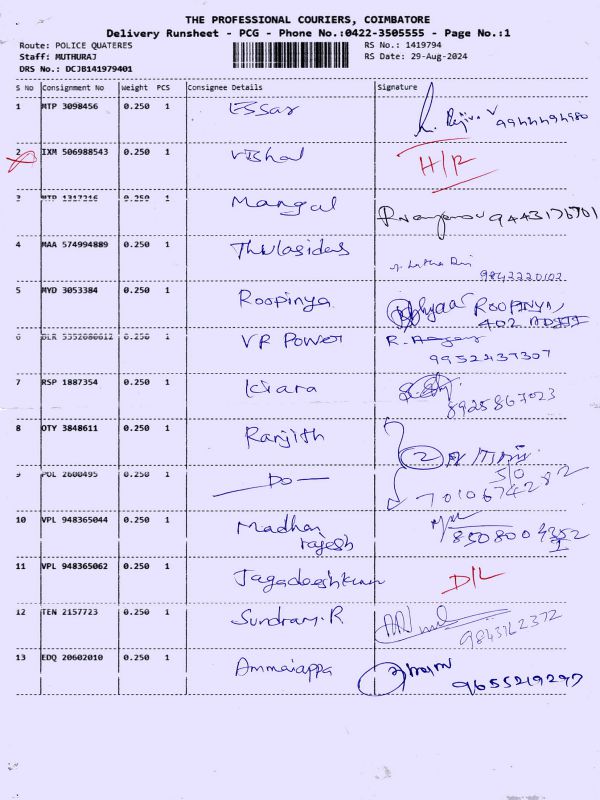 THE PROFESSIONAL COURIERS, COIMBATORE
Delivery Runsheet - PCG - Phone No.:0422-3505555 - Page No.:1
Route: POLICE QUATERES RS No.: 1419794
Staff: MUTHURAJ RS Date: 29-Aug-2024
DRS No.: DCJB141979401
S No Consignment No Weight PCS Consignee Details Signature
1 MTP 3098456 0.250 1 Essar 9944494980
2 IXM 506988543 0.250 1 Vishal H/R
3 MTP 1317216 0.250 1 Mangal 9443176701
4 MAA 574994889 0.250 1 Thulasidas
9842220102
5 MYD 3053384 0.250 1 Roopinya ROOPINYA,
402
6 BLR 0.250 1 VR Power R.
9952437307
7 RSP 1887354 0.250 1 Kiara
8925867023
8 OTY 3848611 0.250 1 Ranjith 2
S/O
9 POL 2600495 0.250 1 — DO — 7010674282
10 VPL 948365044 0.250 1 Madhan
rajesh
11 VPL 948365062 0.250 1 Jagadeeshkumar D/L
12 TEN 2157723 0.250 1 Sundram.R
9843162372
13 EDQ 20602010 0.250 1 Ammaiappa
9655219297